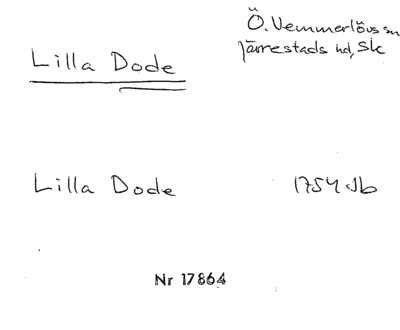 Ö. Vemmerlövs sn
Järrestads hd, Sk
Lilla Dode
Lilla Dode 1754 Jb
Nr 17864